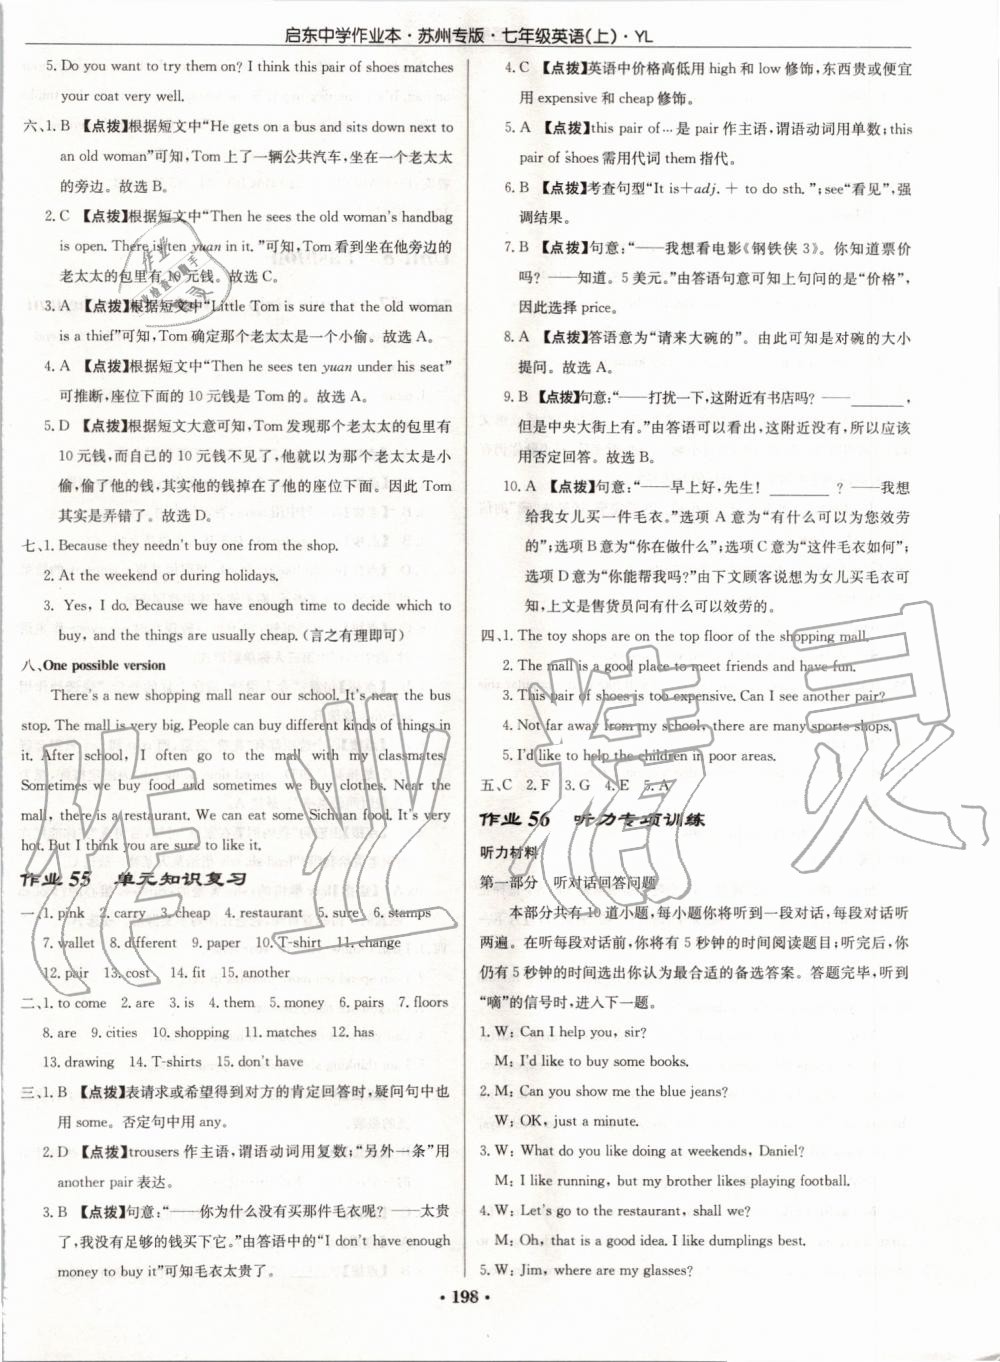 启东中学作业本·苏州专版·七年级英语(上)·YL
5. Do you want to try them on? I think this pair of shoes matches
your coat very well.
六、1. B 【点拨】根据短文中“He gets on a bus and sits down next to
an old woman”可知，Tom上了一辆公共汽车，坐在一个老太太
的旁边。故选B。
2. C 【点拨】根据短文中“Then he sees the old woman's handbag
is open. There is ten yuan in it. ”可知，Tom看到坐在他旁边的
老太太的包里有10元钱。故选C。
3. A 【点拨】根据短文中“Little Tom is sure that the old woman
is a thief”可知，Tom确定那个老太太是一个小偷。故选A。
4. A 【点拨】根据短文中“Then he sees ten yuan under his seat”
可推断，座位下面的10元钱是Tom的。故选A。
5. D 【点拨】根据短文大意可知，Tom发现那个老太太的包里有
10元钱，而自己的10元钱不见了，他就以为那个老太太是小
偷，偷了他的钱，其实他的钱掉在了他的座位下面。因此Tom
其实是弄错了。故选D。
七、1. Because they needn't buy one from the shop.
2. At the weekend or during holidays.
3. Yes, I do. Because we have enough time to decide which to
buy, and the things are usually cheap. (言之有理即可)
八、One possible version
There's a new shopping mall near our school. It's near the bus
stop. The mall is very big. People can buy different kinds of things in
it. After school, I often go to the mall with my classmates.
Sometimes we buy food and sometimes we buy clothes. Near the
mall, there is a restaurant. We can eat some Sichuan food. It's very
hot. But I think you are sure to like it.
作业55 单元知识复习
一、1. pink 2. carry 3. cheap 4. restaurant 5. sure 6. stamps
7. wallet 8. different 9. paper 10. T-shirt 11. change
12. pair 13. cost 14. fit 15. another
二、1. to come 2. are 3. is 4. them 5. money 6. pairs 7. floors
8. are 9. cities 10. shopping 11. matches 12. has
13. drawing 14. T-shirts 15. don't have
三、1. B 【点拨】表请求或希望得到对方的肯定回答时，疑问句中也
用some。否定句中用any。
2. D 【点拨】trousers作主语，谓语动词用复数；“另外一条”用
another pair表达。
3. B 【点拨】句意：“——你为什么没有买那件毛衣呢？——太贵
了，我没有足够的钱买下它。”由答语中的“I don't have enough
money to buy it”可知毛衣太贵了。
4. C 【点拨】英语中价格高低用high和low修饰，东西贵或便宜
用expensive和cheap修饰。
5. A 【点拨】this pair of…是pair作主语，谓语动词用单数；this
pair of shoes需用代词them指代。
6. B 【点拨】考查句型“It is+adj. + to do sth. ”；see“看见”，强
调结果。
7. B 【点拨】句意：“——我想看电影《钢铁侠3》。你知道票价
吗？——知道。5美元。”由答语句意可知上句问的是“价格”，
因此选择price。
8. A 【点拨】答语意为“请来大碗的”。由此可知是对碗的大小
提问。故选A。
9. B 【点拨】句意：“——打扰一下，这附近有书店吗？——______，
但是中央大街上有。”由答语可以看出，这边没有，所以应该
用否定回答。故选B。
10. A 【点拨】句意：“——早上好，先生！______？——我想
给我女儿买一件毛衣。”选项A意为“有什么可以为您效劳
的”；选项B意为“你在做什么”；选项C意为“这件毛衣如何”；
选项D意为“你能帮我吗？”由下文顾客说想为女儿买毛衣可
知，上文是售货员问有什么可以效劳的。
四、1. The toy shops are on the top floor of the shopping mall.
2. The mall is a good place to meet friends and have fun.
3. This pair of shoes is too expensive. Can I see another pair?
4. Not far away from my school, there are many sports shops.
5. I'd like to help the children in poor areas.
五、C 2. F 3. G 4. E 5. A
作业56 听力专项训练
听力材料
第一部分 听对话回答问题
本部分共有10道小题，每小题你将听到一段对话，每段对话听
两遍。在听每段对话前，你将有5秒钟的时间阅读题目；听完后，你
仍有5秒钟的时间选出你认为最合适的备选答案。答题完毕，听到
“嘀”的信号时，进入下一题。
1. W: Can I help you, sir?
M: I'd like to buy some books.
2. M: Can you show me the blue jeans?
W: OK, just a minute.
3. W: What do you like doing at weekends, Daniel?
M: I like running, but my brother likes playing football.
4. W: Let's go to the restaurant, shall we?
M: Oh, that is a good idea. I like dumplings best.
5. W: Jim, where are my glasses?
· 198 ·
作业精灵